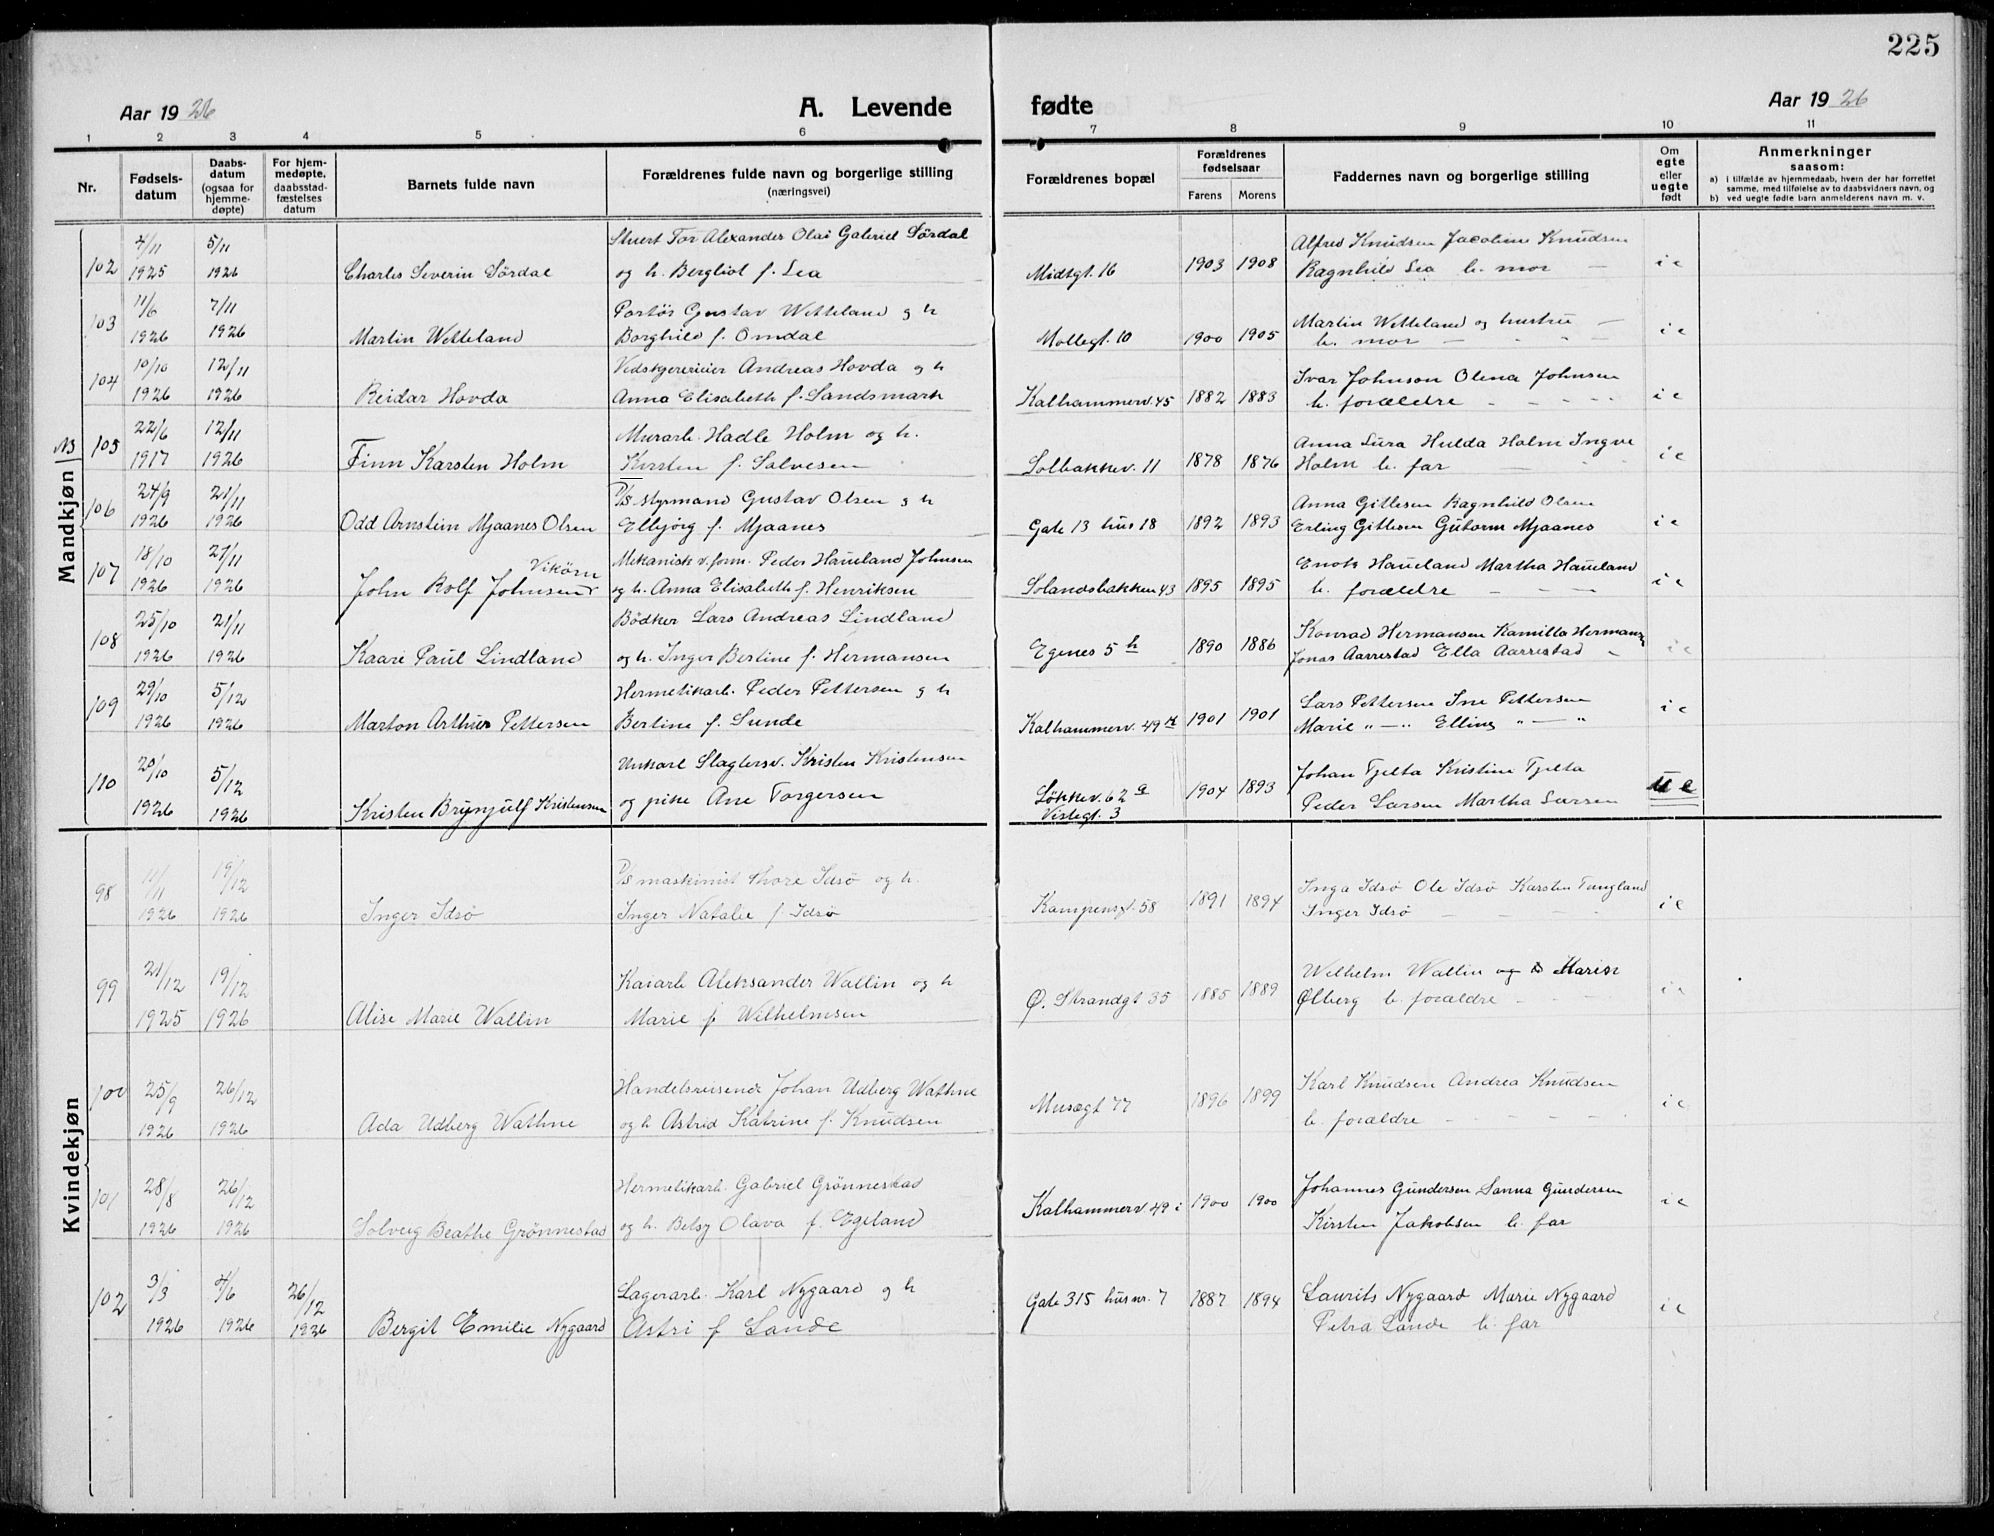 225
Aar 1926 A. Levende fødte Aar 1926
1 2 3 4 5 6 7 8 9 10 11
Nr. Fødselsdatum Daabsdatum (ogsaa for hjemmedøpte) For hjemmedøpte. daabsstadfæstelses datum Barnets fulde navn Forældrenes fulde navn og borgerlige stilling (næringsvei) Forældrenes bopæl Forældrenes fødselsaar Farens Morens Faddernes navn og borgerlige stilling Om egte eller uegte født Anmerkninger saasom:
a) i tilfælde av hjemmedaab, hvem der har forrettet samme, med tilføielse av to daabsvidners navn, og
b) ved uegte fødte barn anmelderens navn m. v.
Mandkjøn
4/11 5/11 Stuert Tor Alexander Olai Gabriel Sördal Alfred Knudsen Jacoline Knudsen
102 1925 1926 Charles Severin Sördal og h. Bergliot f. Lea Midtgt. 16 1903 1908 Ragnhild Lea b. mor — i e
11/6 7/11 Gustav Wetteland g h Martin Wetteland og hustru —
103 1926 1926 Martin Wetteland Borghild f. Omdal Mollegt. 10 1900 1905 b. mor — i e
10/10 12/11 Andreas Hovda g h Ivar Johnson Olena Johnsen
104 1926 1926 Reidar Hovda Anna Elisabeth f. Sandsmark Kalhammerv. 45 1882 1883 b. forældre i e
22/6 12/11 Murarb. Hadle Holm og h. Anna Lura Hulda Holm Ingve
NB 105 1917 1926 Finn Karsten Holm Kirsten f. Salvesen Solbakkev. 11 1878 1876 Holm b. far — i e
24/9 21/11 D/S styrmand Gustav Olsen g h Anna Gittesen Ragnhild Olsen
106 1926 1926 Odd Arnstein Mjaanes Olsen Elbjörg f. Mjaanes Gate 13 hus 18 1892 1893 Erling Gittesen Gutorm Mjaanes i e
18/10 27/11 Vikörn Mekanisk v. form. Peder Haueland Johnsen Enok Haueland Martha Haueland
107 1926 1926 John Rolf Johnsen og h. Anna Elisabeth f. Henriksen Solandsbakken 43 1895 1895 b. forældre i e
25/10 21/11 Bödker Lars Andreas Lindland Konrad Hermansen Kamilla Hermansn
108 1926 1926 Kaare Paul Lindland og h. Inger Bertine f. Hermansen Egenes 5 h 1890 1886 Jonas Aarrestad Ella Aarrestad i e
29/10 5/12 Hermetikarb. Peder Pettersen g h Lars Pettersen Ine Pettersen
109 1926 1926 Marton Arthur Pettersen Bertine f. Sunde Kalhammerv. 49 k 1901 1901 Marie „ — „ Elling „ — „ i e
20/10 5/12 Unkarl Slagtersv. Kristen Kristensen Johan Tjelta Kristine Tjelta
110 1926 1926 Kristen Brynjulf Kristensen og pike Ane Torgersen Løkkev. 62 a 1904 1893 Peder Larsen Martha Larsen u e
Vistegt. 3
Kvindekjøn
11/11 19/12 D/S maskinist Thore Idsö og h. Inga Idsö Ole Idsö Karsten Tungland
98 1926 1926 Inger Idsö Inger Natalie f. Idsö Kampensgt. 58 1891 1894 Inger Idsö i e
21/12 19/12 Kaiarb Aleksander Wallin og h Wilhelm Wallin og Maria
99 1925 1926 Alise Marie Wallin Marie f Wilhelmsen Ø. Strandgt 35 1885 1889 Ølberg b. forældre i e
25/9 26/12 Handelsreisende Johan Udberg Wathne Karl Knudsen Andrea Knudsen
100 1926 1926 Ada Udberg Wathne og h Astrid Katrine f. Knudsen Musægt 77 1896 1899 b. forældre i e
28/8 26/12 Hermetikarb. Gabriel Grönnestad Johannes Gundersen Sanna Gundersen
101 1926 1926 Solveig Beathe Grönnestad og h. Betsy Olava f. Egeland Kalhammerv 49 i 1900 1900 Kirsten Jakobsen b. far i e
3/3 4/6 26/12 Lagerarb. Karl Nygaard g h Laurits Nygaard Marie Nygaard
102 1926 1926 1926 Bergit Emilie Nygaard Astri f Sande Gate 315 husnr. 7 1887 1894 Petra Sande b. far i e